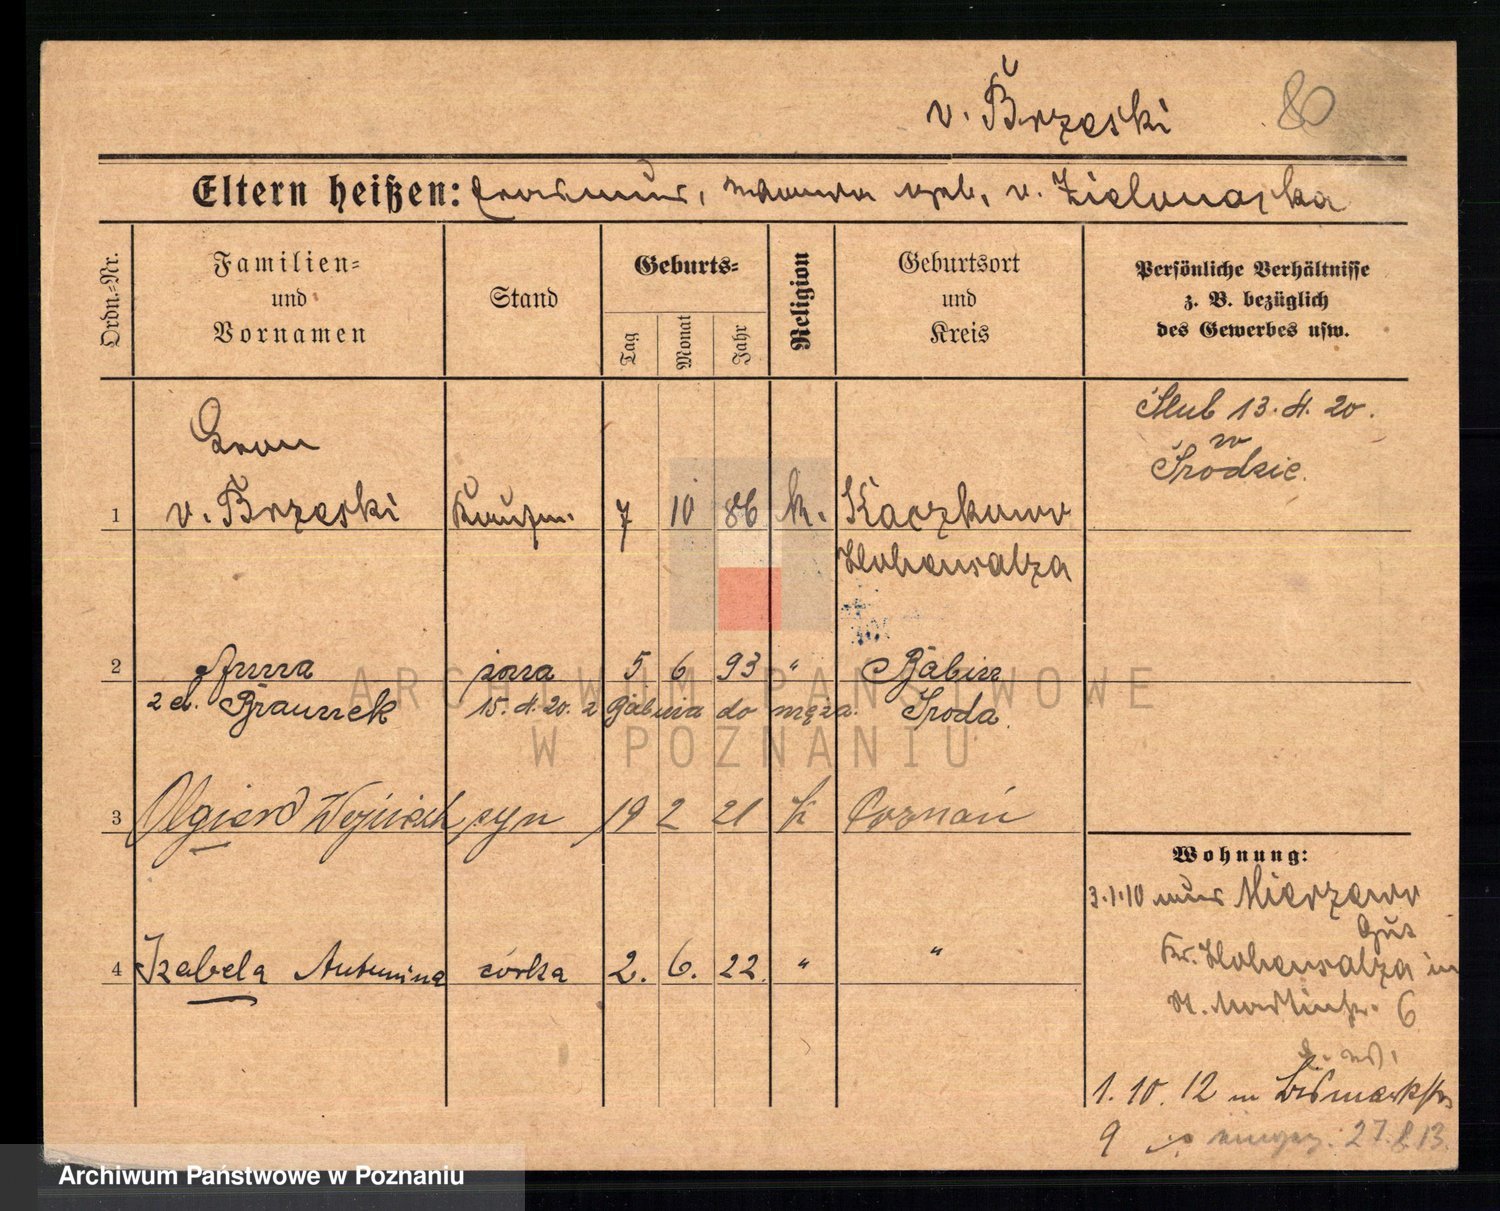 v. Brzeski 80
Eltern heißen: Erasmus, geb. v. Zielonacka
Ordn.-Nr.
Familien-
und
Vornamen
Stand
Geburts-
Tag
Monat
Jahr
Religion
Geburtsort
und
Kreis
Persönliche Verhältnisse
z. B. bezüglich
des Gewerbes usw.
Ślub 13. 4. 20.
w
Środzie.
1 v. Brzeski Kaufm. 7 10 86 k. Kaczkowo
Hohensalza
2 Anna żona 5. 6 93 " Babin
z d. Braunek 15. 4. 20. z Babina do męża. Środa
3 Olgierd Wojciech syn 19 2 21 k Poznań
4 Izabela Antonina córka 2. 6. 22. " "
Wohnung:
3.1.10 aus Mierzewo
Gut
Kr. Hohensalza in
St. Martinstr. 6
1. 10. 12 in Bismarckstr.
9 27. 8 13.
ARCHIWUM PAŃSTWOWE
W POZNANIU
Archiwum Państwowe w Poznaniu